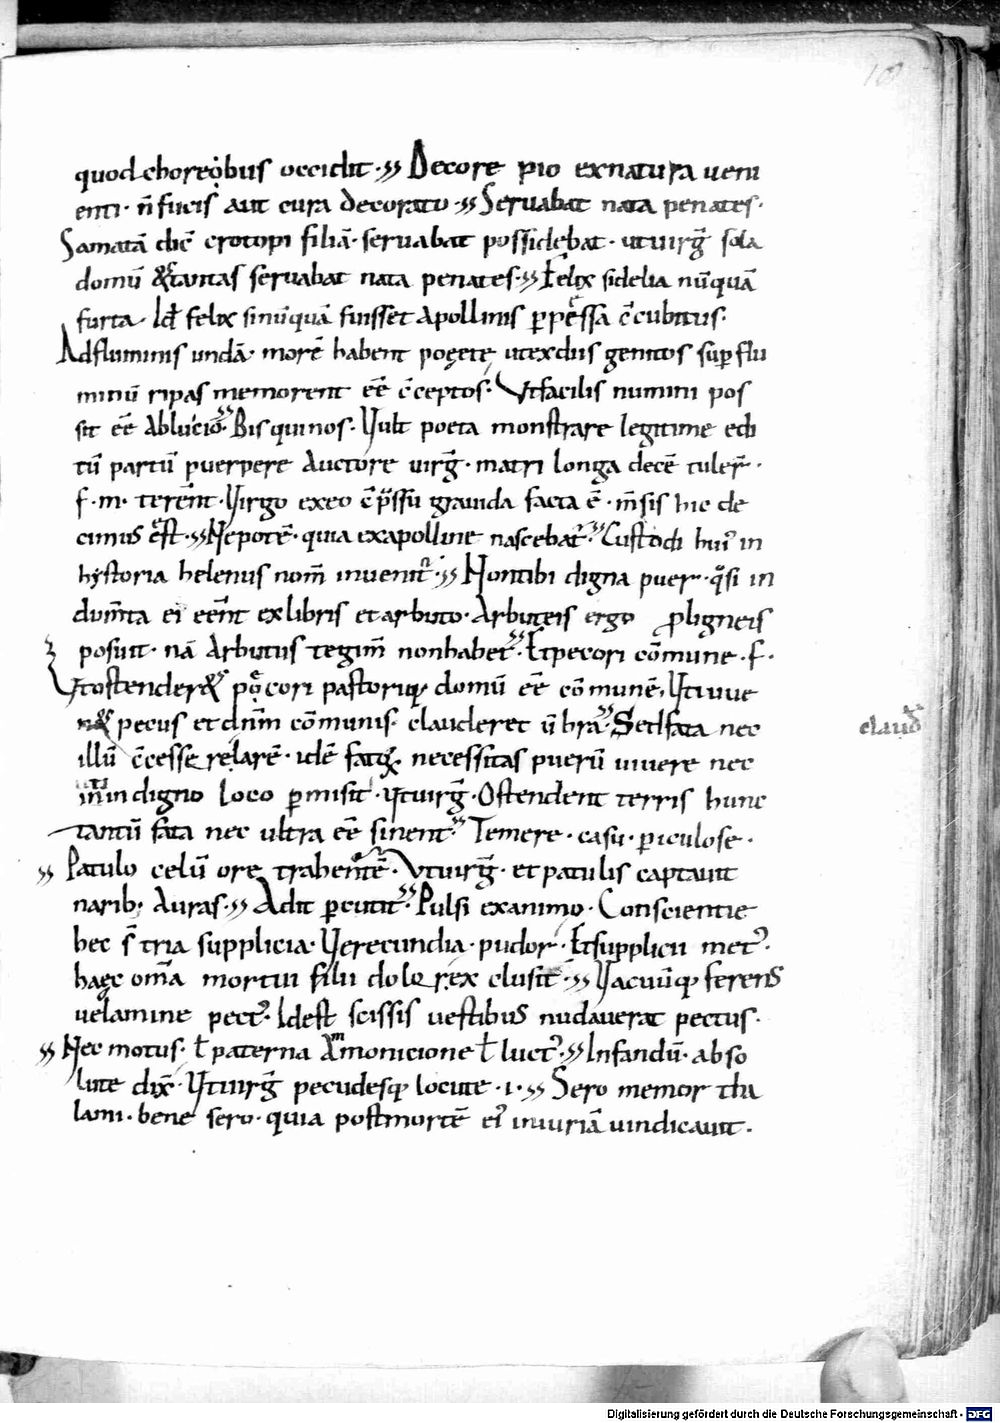 quod choreo͗bus occidit· Decore pio exnatura ueni
enti· n̄ fucis aut cura decorato· Seruabat nata penates·
Samatā dic̄ crotopi filiā· seruabat possidebat· utuirg̅ sola
domū &tantas seruabat nata penates· Felix sidelia nūquā
furta· Id̄ felix sinūquā fuisset apollinis ꝑpessa c̄cubitus·
Adfluminis undā· morē habent poęetę utexclusgenitos suꝑflu
minū ripas memorent eē c̄ceptos· Vtfacilis numini pos
sit eē ablucio· Bis quinos· Vult poeta monstrare legitime edi
tū partū puerpere Auctore uirg̅· matri longa decē tuler̄·
f· m· terēnt· Virgo exeo c̄p̄ssu grauida facta ē· m̄sis hic de
cimus est· Nepotē· quia exapolline nascebat᷑· Custodi hui᷒ in
hystoria helenus nom̄ inuenit᷑· Nontibi digna puer· q̊si in
dum̄ta ei eēnt exlibris etarbuto· Arbuteis ergo ꝓligneis
posuit· nā Arbutus tegim̄ nonhabet᷑· Etpecori cōmune· f·
Vtostender& pecori pastoriqꝫ domū eē cōmunē· Vtiuue
n& pecus etdn̄m cōmunis· clauderet ūbra· Sedfata nec
claud̄
illū c̄cesse relarē· idē fatoꝝ necessitas puerū uiuere nec
in indigno loco ꝑmisit· Vtuirg̅· Ostendent terris hunc
tantū fata nec ultra eē sinent· Temere· casu· ꝑiculose·
Patulo celū ore trahentē· Vtuirg̅· et patulis captauit
narib; Auras· Adit ꝑcutit· Pulsi exanimo· Conscientie
hec s̄ tria supplicia· Verecundia· pudor· Etsupplicii met᷒·
haęc om̄a mortui filii dolor rex clusit· Vacuūqꝫ ferens
uelamine pect᷒· Idest scissis uestibus nudauerat pectus·
Nec motus· ł paterna ammonicione ł luct᷒· Infandū· abso
lute dix̄· Vtuirg̅ pecudesqꝫ locute· i· Sero memor tha
lami· bene sero· quia postmortē ei᷒ iniuriā uindicauit·
Digitalisierung gefördert durch die Deutsche Forschungsgemeinschaft - DFG